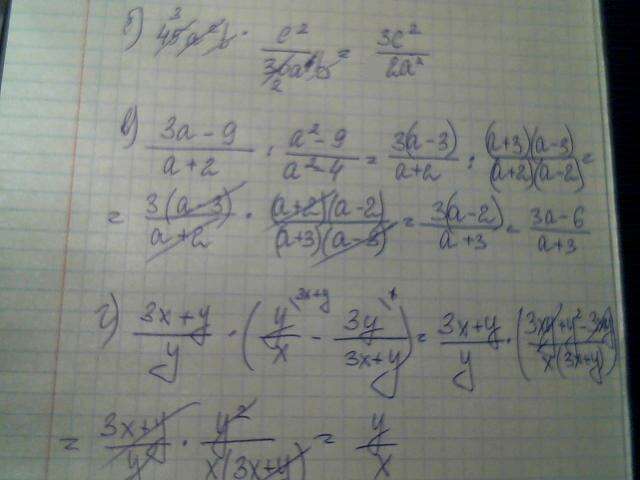 б) 45a²b · c² / 30a⁴b = 3c² / 2a²
в) (3a - 9) / (a + 2) : (a² - 9) / (a² - 4) = 3(a - 3) / (a + 2) : (a+3)(a-3) / (a+2)(a-2) =
= 3(a - 3) / (a + 2) · (a+2)(a-2) / (a+3)(a-3) = 3(a-2) / (a + 3) = (3a - 6) / (a + 3)
г) (3x + y) / y · (y / x - 3y / (3x+y)) = (3x + y) / y · ((3xy + y² - 3xy) / x(3x+y))
= (3x + y) / y · y² / x(3x+y) = y / x